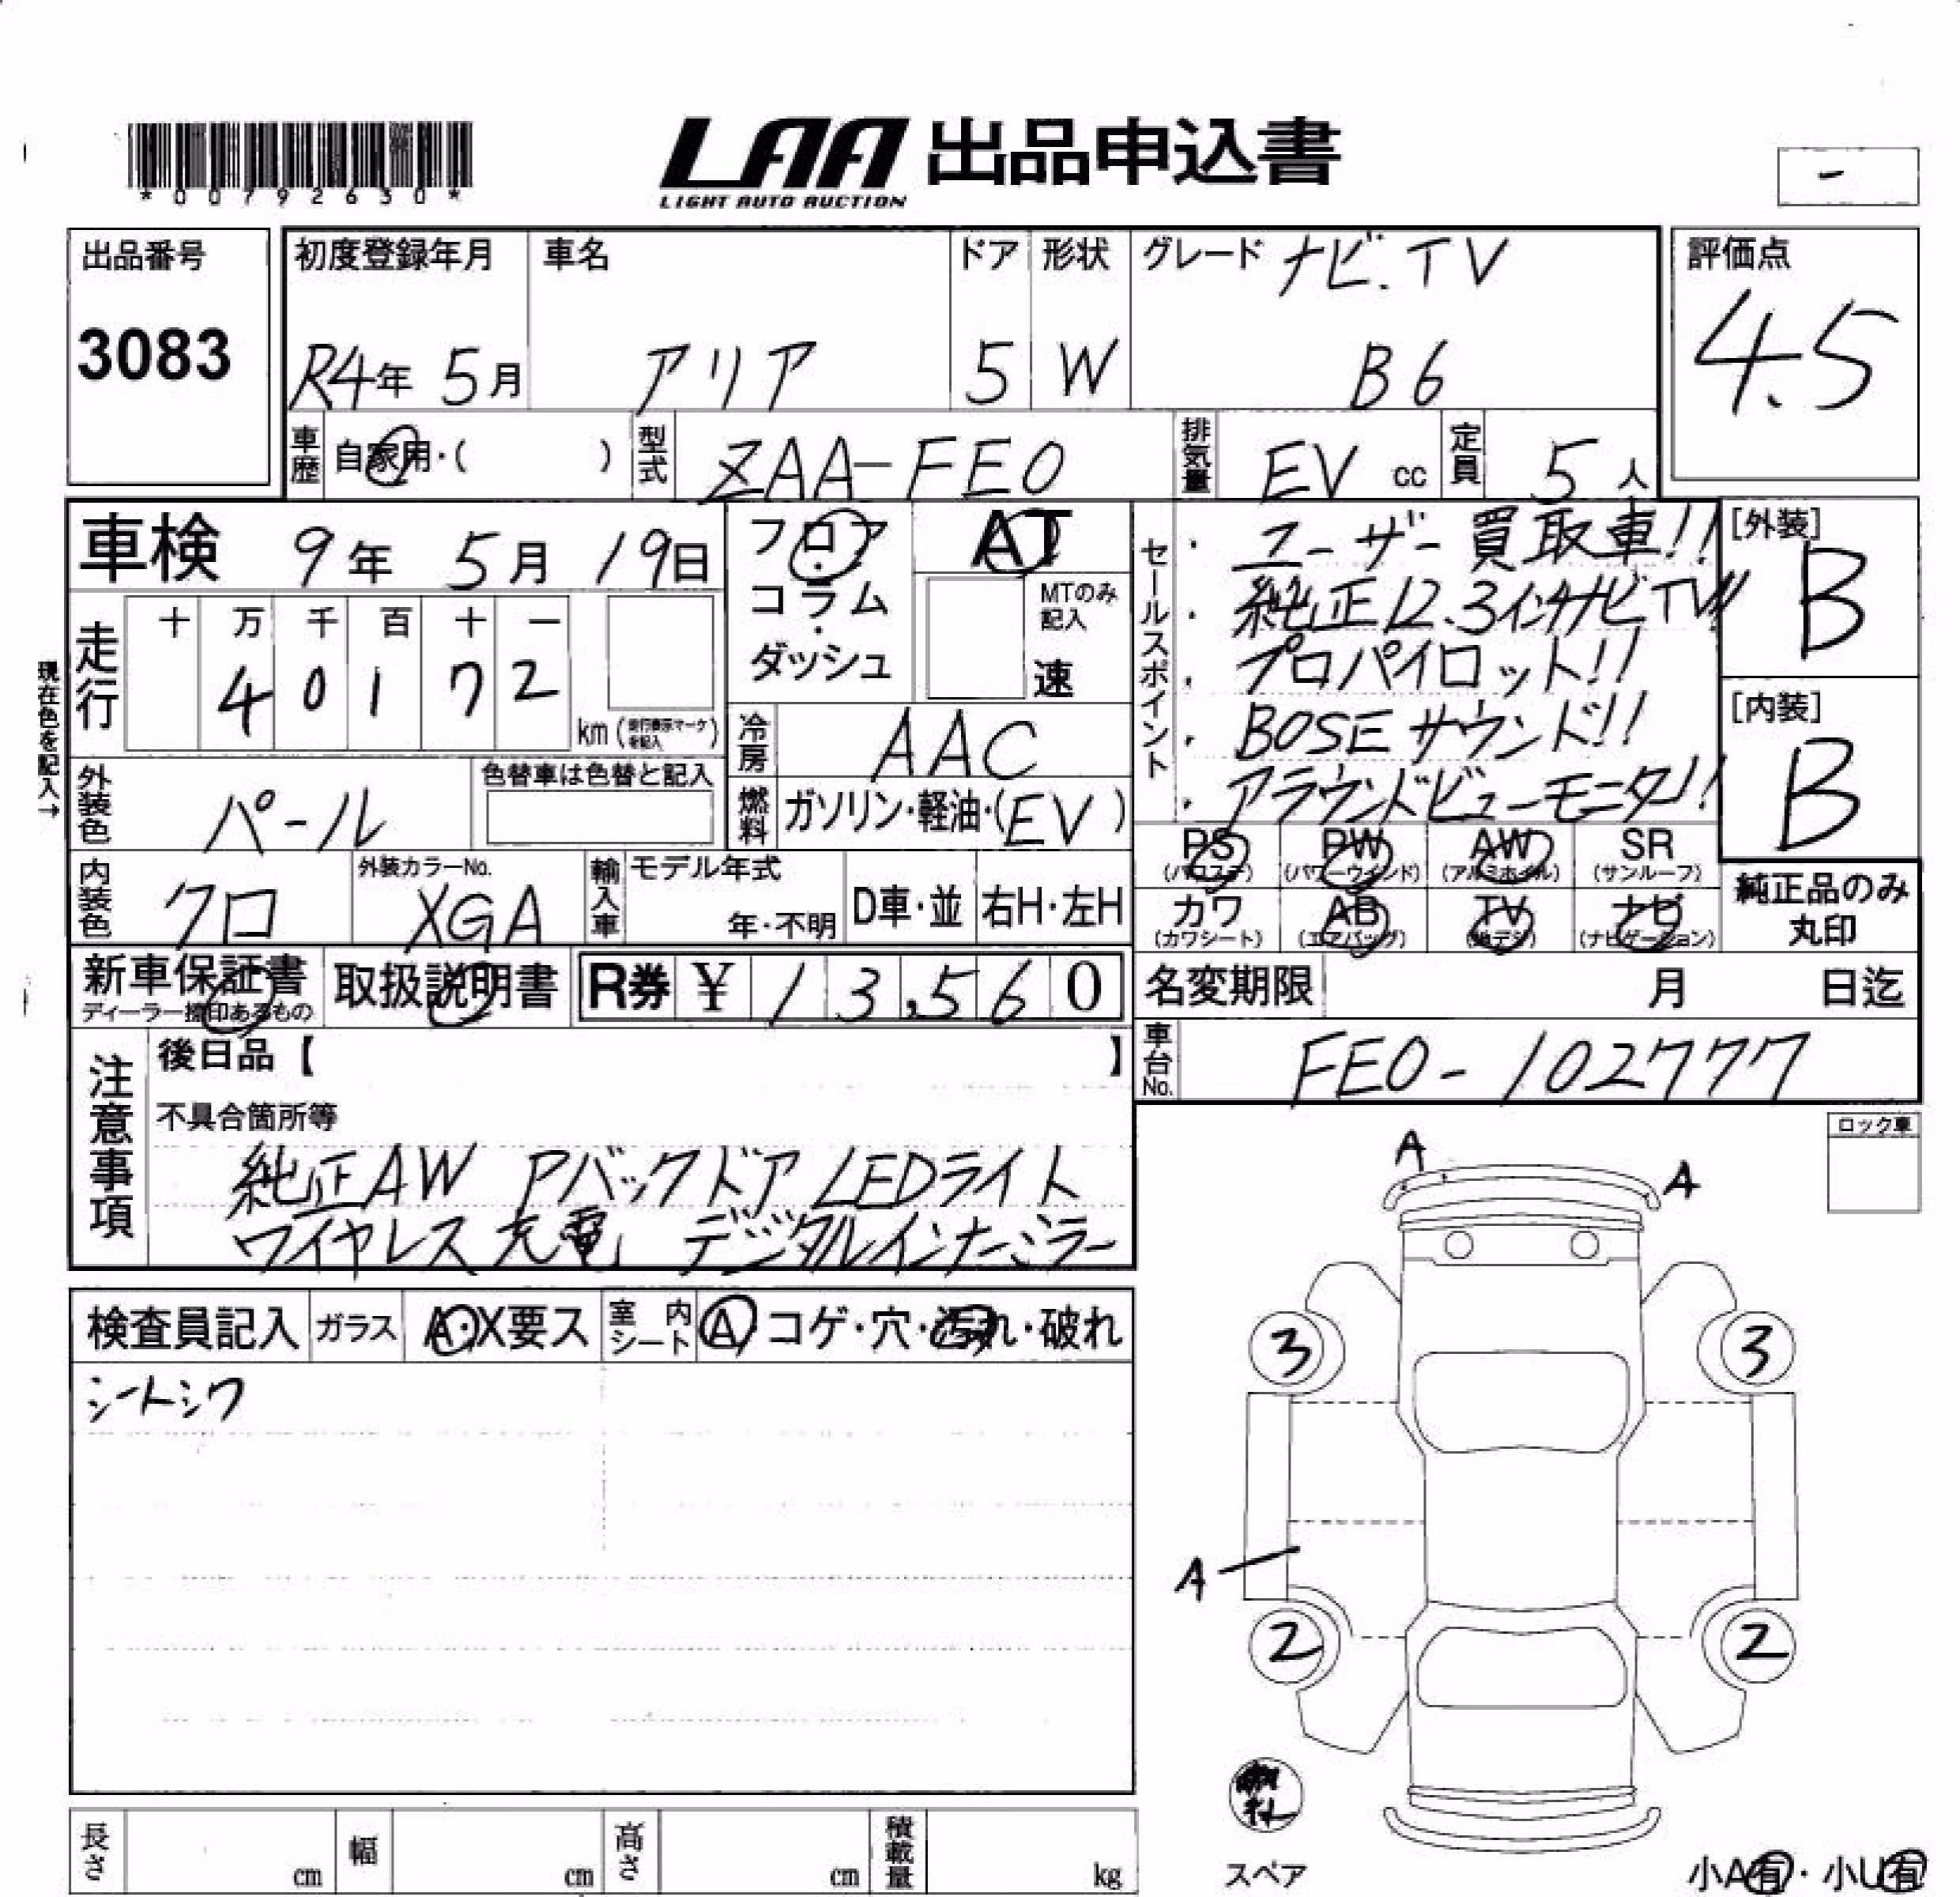 LAA 出品申込書
LIGHT AUTO AUCTION
*00792630*
-
出品番号
3083
初度登録年月
R4年 5月
車名
アリア
ドア
5
形状
W
グレード ナビ.TV
B6
評価点
4.5
車歴 自家用・( )
型式 ZAA-FE0
排気量 EV cc
定員 5人
車検 9年 5月 19日
フロア・コラム・ダッシュ
AT
MTのみ記入
速
セールスポイント
・ユーザー買取車!!
・純正12.3インチナビTV!!
・プロパイロット!!
・BOSEサウンド!!
・アラウンドビューモニター!!
[外装]
B
[内装]
B
走行
十 万 千 百 十 一
4 0 1 7 2
km
現在色を記入→
冷房 AAC
燃料 ガソリン・軽油・(EV)
外装色 パール
色替車は色替と記入
内装色 クロ
外装カラーNo.
XGA
輸入車 モデル年式
年・不明
D車・並
右H・左H
PS PW AW SR
(パワステ) (パワーウインド) (アルミホイル) (サンルーフ)
カワ AB TV ナビ
(カワシート) (エアバッグ) (地デジ) (ナビゲーション)
純正品のみ
丸印
新車保証書
ディーラー捺印あるもの
取扱説明書
R券 ¥ 13,560
名変期限 月 日迄
車台No. FE0-102777
注意事項
後日品【 】
不具合箇所等
純正AW Pバックドア LEDライト
ワイヤレス充電 デジタルインナーミラー
ロック車
検査員記入 ガラス A・X要ス 室内シート A コゲ・穴・汚れ・破れ
シートシワ
A
A
3 3
A
2 2
スペア
小A有・小U有
長さ cm
幅 cm
高さ cm
積載量 kg